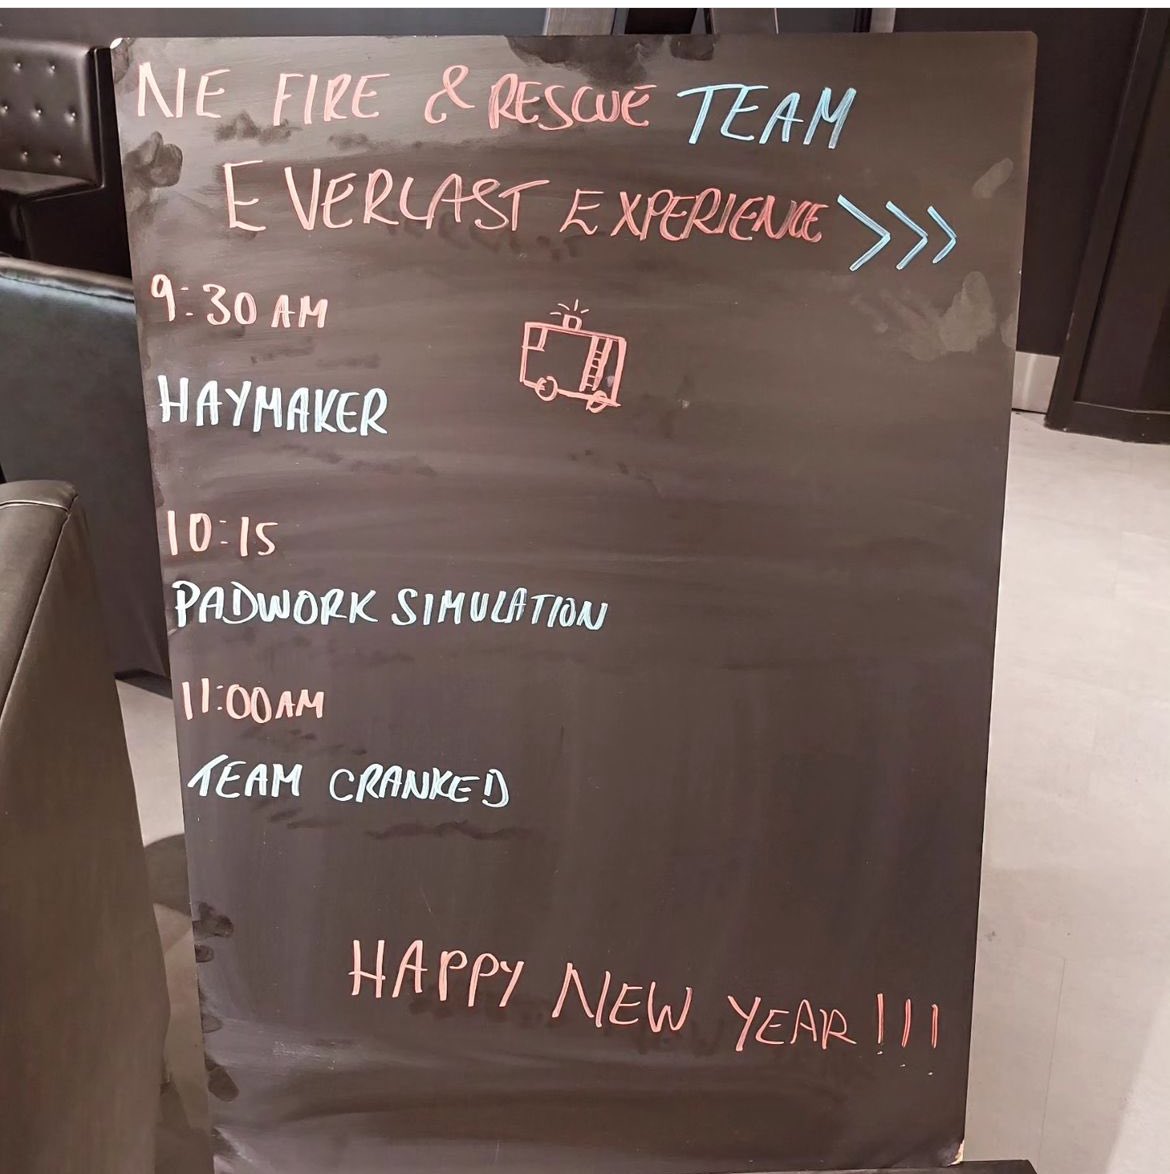 NE FIRE & RESCUE TEAM
EVERLAST EXPERIENCE >>>
9:30 AM
HAYMAKER
10:15
PADWORK SIMULATION
11:00AM
TEAM CRANKED
HAPPY NEW YEAR!!!